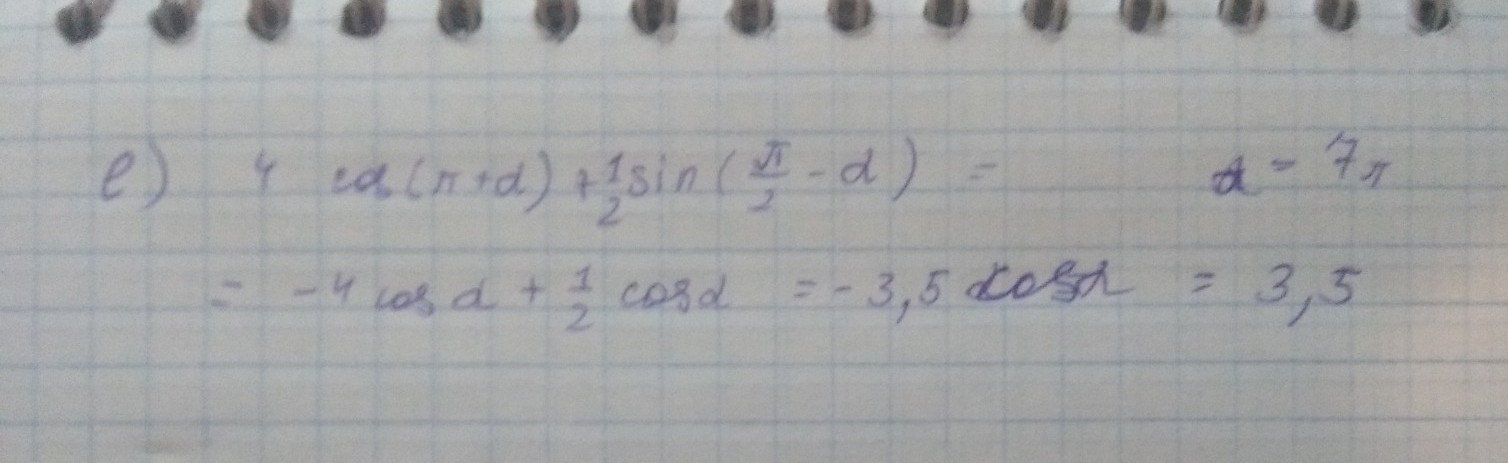 e) 4 cos(π+α) + 1/2 sin(π/2 - α) = α = 7π
= -4 cos α + 1/2 cos α = -3,5 cos α = 3,5